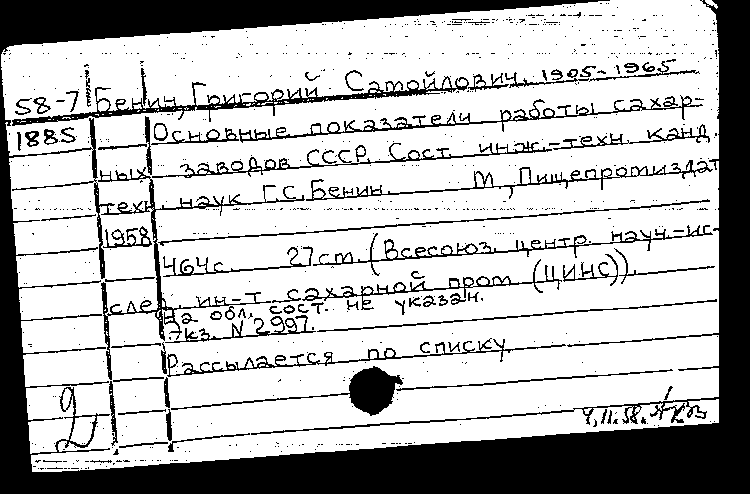 58-7 Бенин, Григорий Самойлович. 1905-1965
1885 Основные показатели работы сахар-
ных заводов СССР. Сост. инж.-техн. канд.
техн. наук Г.С. Бенин. М., Пищепромиздат
1958
464с. 27cm. (Всесоюз. центр. науч.-ис-
след. ин-т сахарной пром (ЦИНС)).
На обл. сост. не указан.
Экз. N 2997.
Рассылается по списку
2
4.11.58.